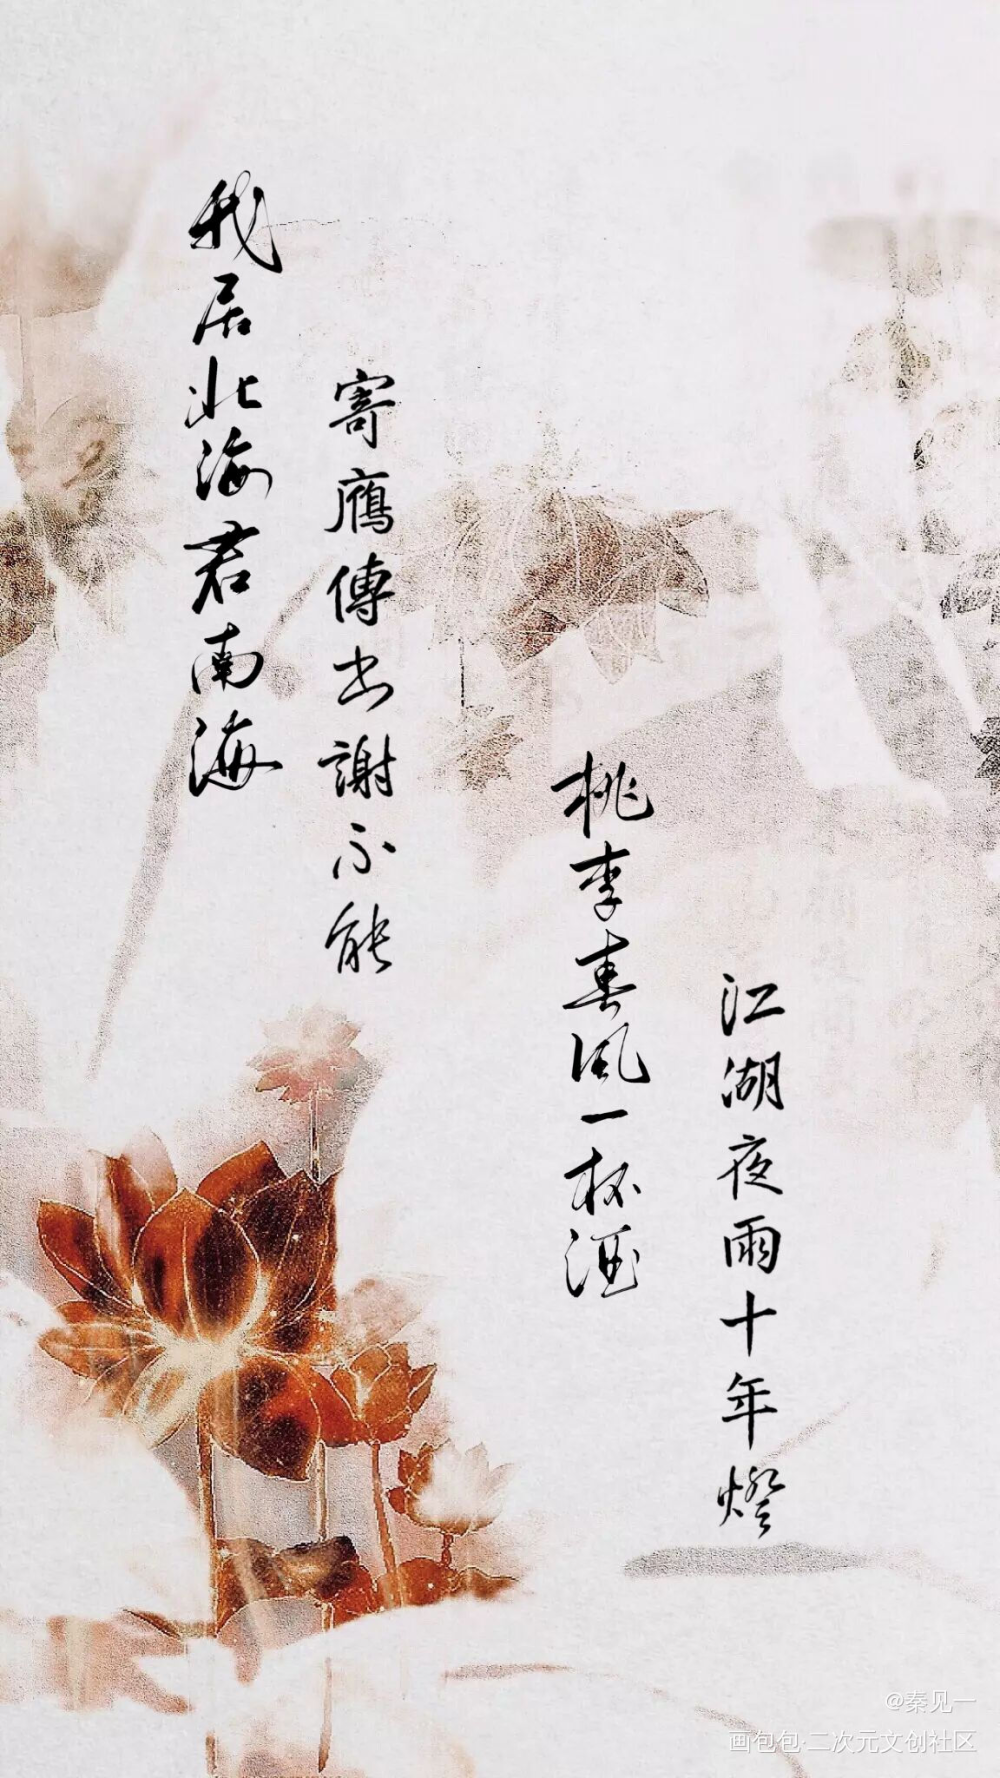 我居北海君南海
寄鴈傳书謝不能
桃李春风一杯酒
江湖夜雨十年燈
@秦见一
画包包·二次元文创社区